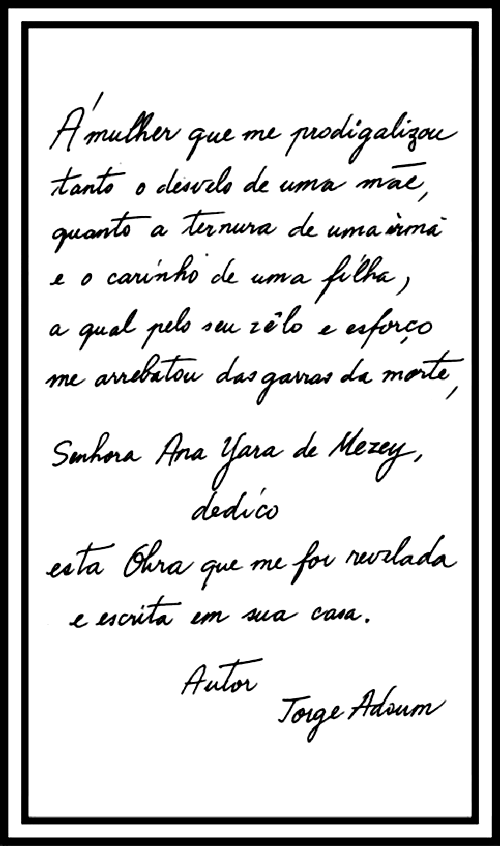 Á mulher que me prodigalizou
tanto o desvelo de uma mãe,
quanto a ternura de uma irmã
e o carinho de uma filha,
a qual pelo seu zêlo e esforço
me arrebatou das garras da morte,
Senhora Ana Yara de Mezey,
dedico
esta Obra que me foi revelada
e escrita em sua casa.
Autor
Jorge Adoum